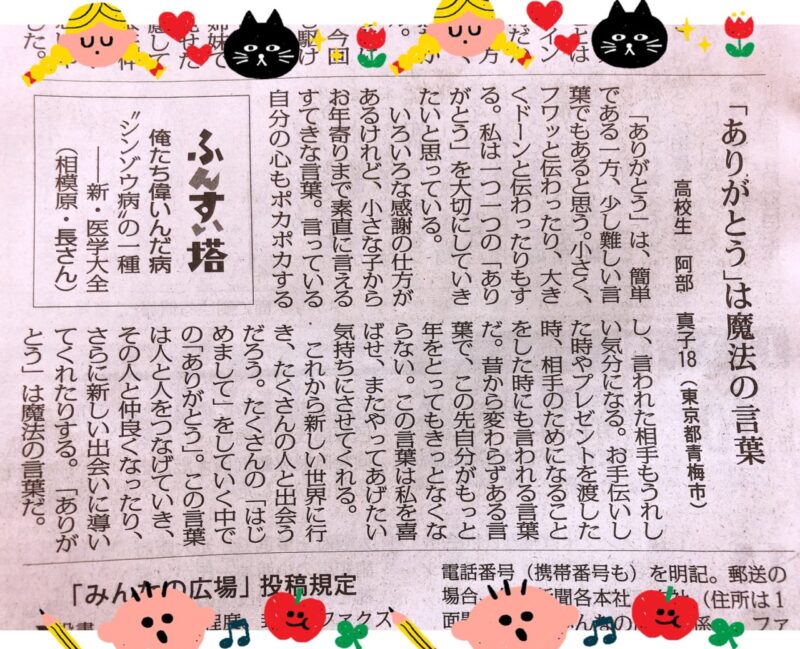 とは
イン
今回
駆け
姉妹で
した。
「ありがとう」は魔法の言葉
高校生 阿部 真子18(東京都青梅市)
「ありがとう」は、簡単
である一方、少し難しい言
葉でもあると思う。小さく、
フワッと伝わったり、大き
くドーンと伝わったりもす
る。私は一つ一つの「あり
がとう」を大切にしていき
たいと思っている。
いろいろな感謝の仕方が
あるけれど、小さな子から
お年寄りまで素直に言える
すてきな言葉。言っている
自分の心もポカポカする
し、言われた相手もうれし
い気分になる。お手伝いし
た時やプレゼントを渡した
時、相手のためになること
をした時にも言われる言葉
だ。昔から変わらずある言
葉で、この先自分がもっと
年をとってもきっとなくな
らない。この言葉は私を喜
ばせ、またやってあげたい
気持ちにさせてくれる。
これから新しい世界に行
き、たくさんの人と出会う
だろう。たくさんの「はじ
めまして」をしていく中で
の「ありがとう」。この言葉
は人と人をつなげていき、
その人と仲良くなったり、
さらに新しい出会いに導い
てくれたりする。「ありが
とう」は魔法の言葉だ。
ふんすい塔
俺たち偉いんだ病
〝シンゾウ病〟の一種
――新・医学大全
(相模原・長さん)
「みんなの広場」投稿規定
程度
ファクス
電話番号(携帯番号も)を明記。郵送の
場合 聞各本社 (住所は1
面
ファ